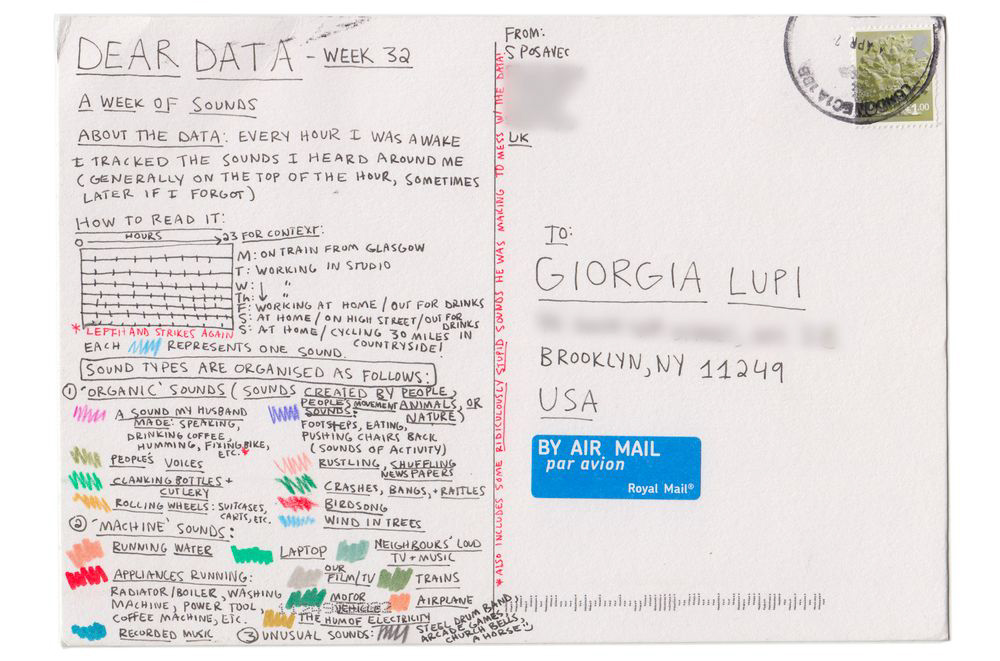 DEAR DATA - WEEK 32
A WEEK OF SOUNDS
ABOUT THE DATA: EVERY HOUR I WAS AWAKE
I TRACKED THE SOUNDS I HEARD AROUND ME
(GENERALLY ON THE TOP OF THE HOUR, SOMETIMES
LATER IF I FORGOT)
HOW TO READ IT:
0 HOURS 23
FOR CONTEXT:
M: ON TRAIN FROM GLASGOW
T: WORKING IN STUDIO
W: "
Th: "
F: WORKING AT HOME/OUT FOR DRINKS
S: AT HOME/ON HIGH STREET/OUT FOR DRINKS
S: AT HOME/CYCLING 30 MILES IN COUNTRYSIDE!
* LEFTHAND STRIKES AGAIN
EACH REPRESENTS ONE SOUND.
SOUND TYPES ARE ORGANISED AS FOLLOWS:
① 'ORGANIC' SOUNDS (SOUNDS CREATED BY PEOPLE, ANIMALS, OR NATURE)
A SOUND MY HUSBAND
MADE: SPEAKING,
DRINKING COFFEE,
HUMMING, FIXING BIKE,
ETC.*
PEOPLE'S MOVEMENT
SOUNDS:
FOOTSTEPS, EATING,
PUSHING CHAIRS BACK
(SOUNDS OF ACTIVITY)
PEOPLE'S VOICES
RUSTLING, SHUFFLING
NEWSPAPERS
CLANKING BOTTLES +
CUTLERY
CRASHES, BANGS, + RATTLES
ROLLING WHEELS: SUITCASES,
CARTS, ETC.
BIRDSONG
WIND IN TREES
② 'MACHINE' SOUNDS:
RUNNING WATER
LAPTOP
NEIGHBOURS' LOUD
TV + MUSIC
APPLIANCES RUNNING:
RADIATOR/BOILER, WASHING
MACHINE, POWER TOOL,
COFFEE MACHINE, ETC.
OUR
FILM/TV
TRAINS
MOTOR
VEHICLE
AIRPLANE
THE HUM OF ELECTRICITY
RECORDED MUSIC
③ UNUSUAL SOUNDS:
STEEL DRUM BAND,
ARCADE GAMES,
CHURCH BELLS,
A HORSE
* ALSO INCLUDES SOME RIDICULOUSLY STUPID SOUNDS HE WAS MAKING TO MESS W/ THE DATA!
FROM:
S POSAVEC
UK
LONDON EC1A 1BB
APR
£1.00
TO:
GIORGIA LUPI
BROOKLYN, NY 11249
USA
BY AIR MAIL
par avion
Royal Mail®